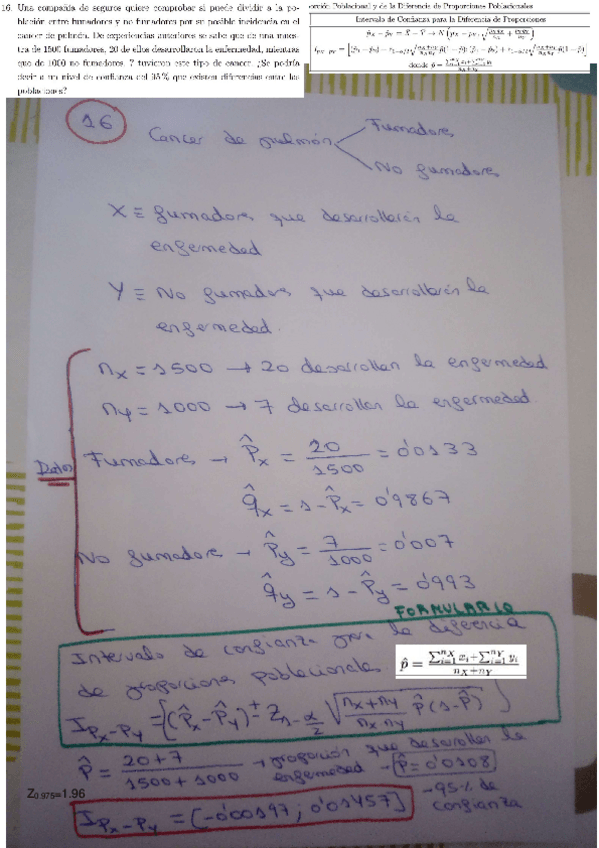 16. Una compañía de seguros quiere comprobar si puede dividir a la po-
blación entre fumadores y no fumadores por su posible incidencia en el
cancer de pulmón. De experiencias anteriores se sabe que de una mues-
tra de 1500 fumadores, 20 de ellos desarrollaron la enfermedad, mientras
que de 1000 no fumadores, 7 tuvieron este tipo de cancer. ¿Se podría
decir a un nivel de confianza del 95% que existen diferencias entre las
poblaciones?
orción Poblacional y de la Diferencia de Proporciones Poblacionales
Intervalos de Confianza para la Diferencia de Proporciones
donde p̂ = (∑ᵢ₌₁ⁿˣ xᵢ + ∑ᵢ₌₁ⁿʸ yᵢ) / (nX + nY)
16
Cancer de pulmón
Fumadores
No fumadores
X ≡ fumadores que desarrollarán la
enfermedad
Y ≡ No fumadores que desarrollarán la
enfermedad.
nx = 1500 → 20 desarrollan la enfermedad
ny = 1000 → 7 desarrollan la enfermedad.
Datos
Fumadores → P̂x = 20/1500 = 0'0133
q̂x = 1 - P̂x = 0'9867
No fumadore → P̂y = 7/1000 = 0'007
q̂y = 1 - P̂y = 0'993
FORMULARIO
Intervalo de confianza para la diferencia
de proporciones poblacionales.
p̂ = (∑ᵢ₌₁ⁿˣ xᵢ + ∑ᵢ₌₁ⁿʸ yᵢ) / (nX + nY)
I Px-Py = [(P̂x - P̂y) ± Z 1-α/2 √((nx+ny)/(nx ny) p̂(1-p̂))]
P̂ = (20+7)/(1500+1000) → proporción que desarrollan la
enfermedad → P̂ = 0'0108
Z0.975=1.96
I Px-Py = [-0'00197 ; 0'01457]
→ 95% de
confianza